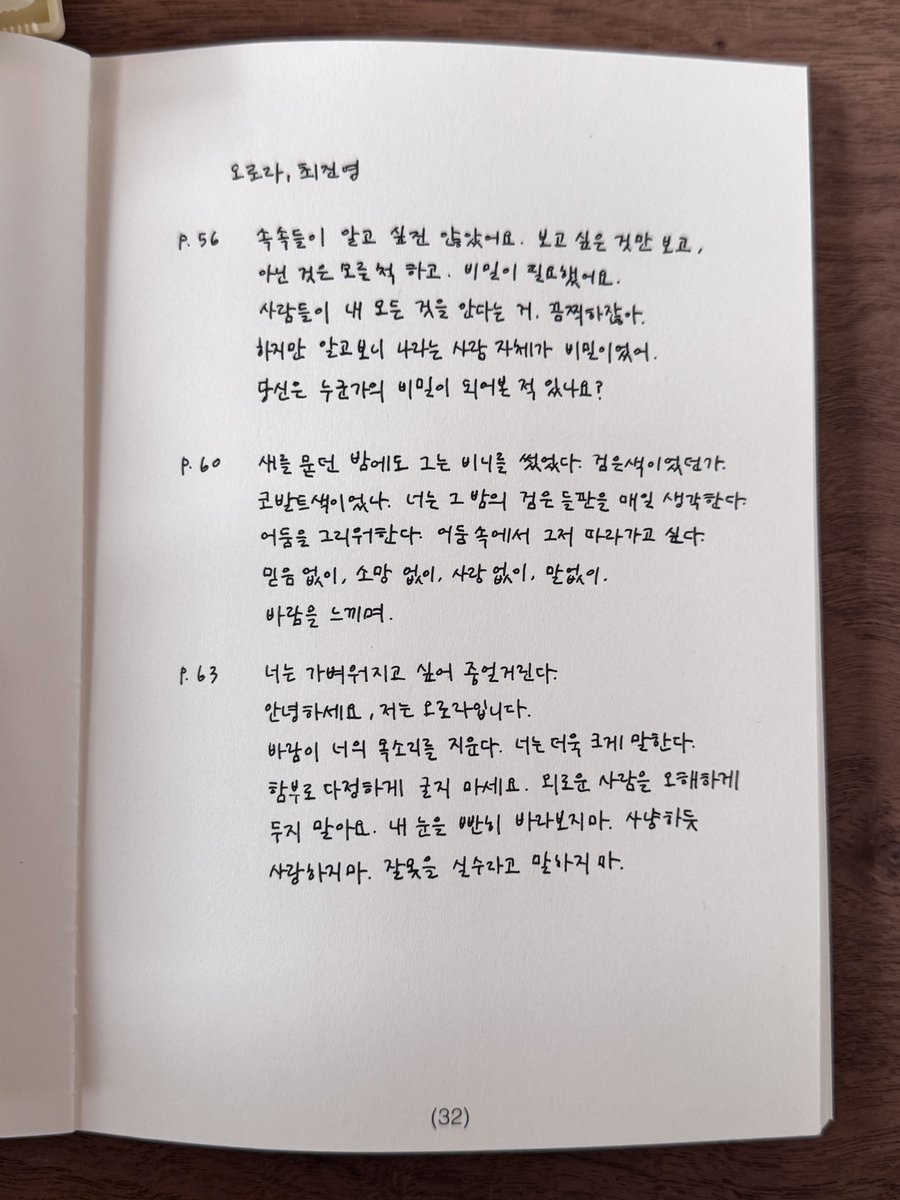 오로라, 최진영
p.56 속속들이 알고 싶진 않았어요. 보고 싶은 것만 보고,
아닌 것은 모른 척 하고. 비밀이 필요했어요.
사람들이 내 모든 것을 안다는 거. 끔찍하잖아.
하지만 알고보니 나라는 사람 자체가 비밀이었어.
당신은 누군가의 비밀이 되어본 적 있나요?
p.60 새를 묻던 밤에도 그는 비니를 썼었다. 검은색이었던가.
코발트색이었나. 너는 그 밤의 검은 들판을 매일 생각한다.
어둠을 그리워한다. 어둠속에서 그저 따라가고 싶다.
믿음 없이, 소망 없이, 사랑 없이, 말없이.
바람을 느끼며.
p.63 너는 가벼워지고 싶어 중얼거린다.
안녕하세요, 저는 오로라입니다.
바람이 너의 목소리를 지운다. 너는 더욱 크게 말한다.
함부로 다정하게 굴지 마세요. 외로운 사람을 오해하게
두지 말아요. 내 눈을 빤히 바라보지마. 사냥하듯
사랑하지마. 잘못을 실수라고 말하지 마.
(32)